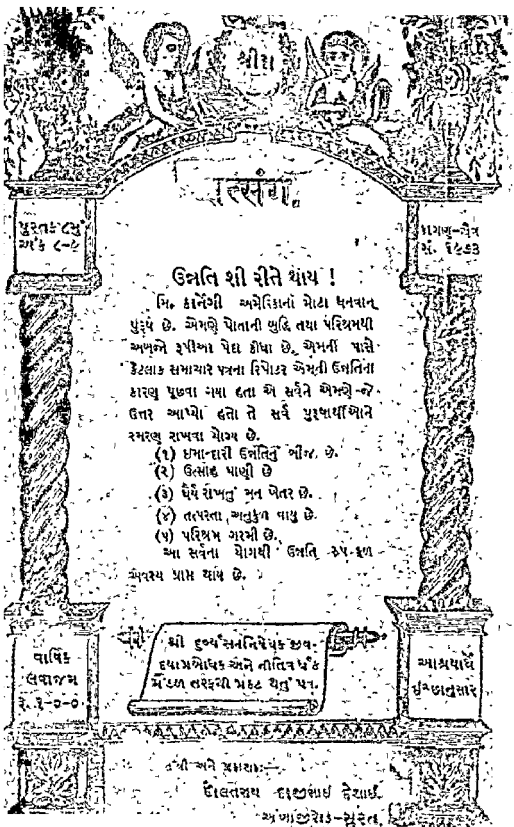 શ્રીરા
सत्संग.
પુસ્તક ૮મું
અંક ૮-૯
ફાગણ-ચૈત્ર
સં. ૧૯૭૩
ઉન્નતિ શી રીતે થાય !
મિ. કાર્નેગી અમેરિકાનાં મોટા ધનવાન્
પુરૂષ છે. એમણે પોતાની બુદ્ધિ તથા પરિશ્રમથી
અબજો રૂપીઆ પેદા કીધા છે. એમની પાસે
કેટલાક સમાચાર પત્રના રિપોટર એમની ઉન્નતિના
કારણ પૂછવા ગયા હતા એ સર્વને એમણે જે
ઉત્તર આપ્યો હતો તે સર્વ પુરૂષાર્થીઓને
સ્મરણ રાખવા યોગ્ય છે.
(૧) ઇમાન્દારી ઉન્નતિનું બીજ છે.
(૨) ઉત્સાહ પાણી છે
(૩) ધૈર્ય રાખવું મન ખેતર છે.
(૪) તત્પરતા અનુકુળ વાયુ છે.
(૫) પરિશ્રમ ગરમી છે.
આ સર્વના યોગથી ઉન્નતિ-રૂપ-ફળ
અવશ્ય પ્રાપ્ત થાય છે.
શ્રી દુર્વ્યસનનિષેધક જીવ-
દયાપ્રબોધક અને નીતિવર્ધક
મંડળ તરફથી પ્રકટ થતું પત્ર.
વાર્ષિક
લવાજમ
રૂ. ૧-૦-૦
આશ્રયાર્થે
ઈચ્છાનુસાર
તંત્રી અને પ્રકાશક:—
દોલતરાય દાજીભાઈ દેસાઈ.
અંબાજીરોડ-સુરત.